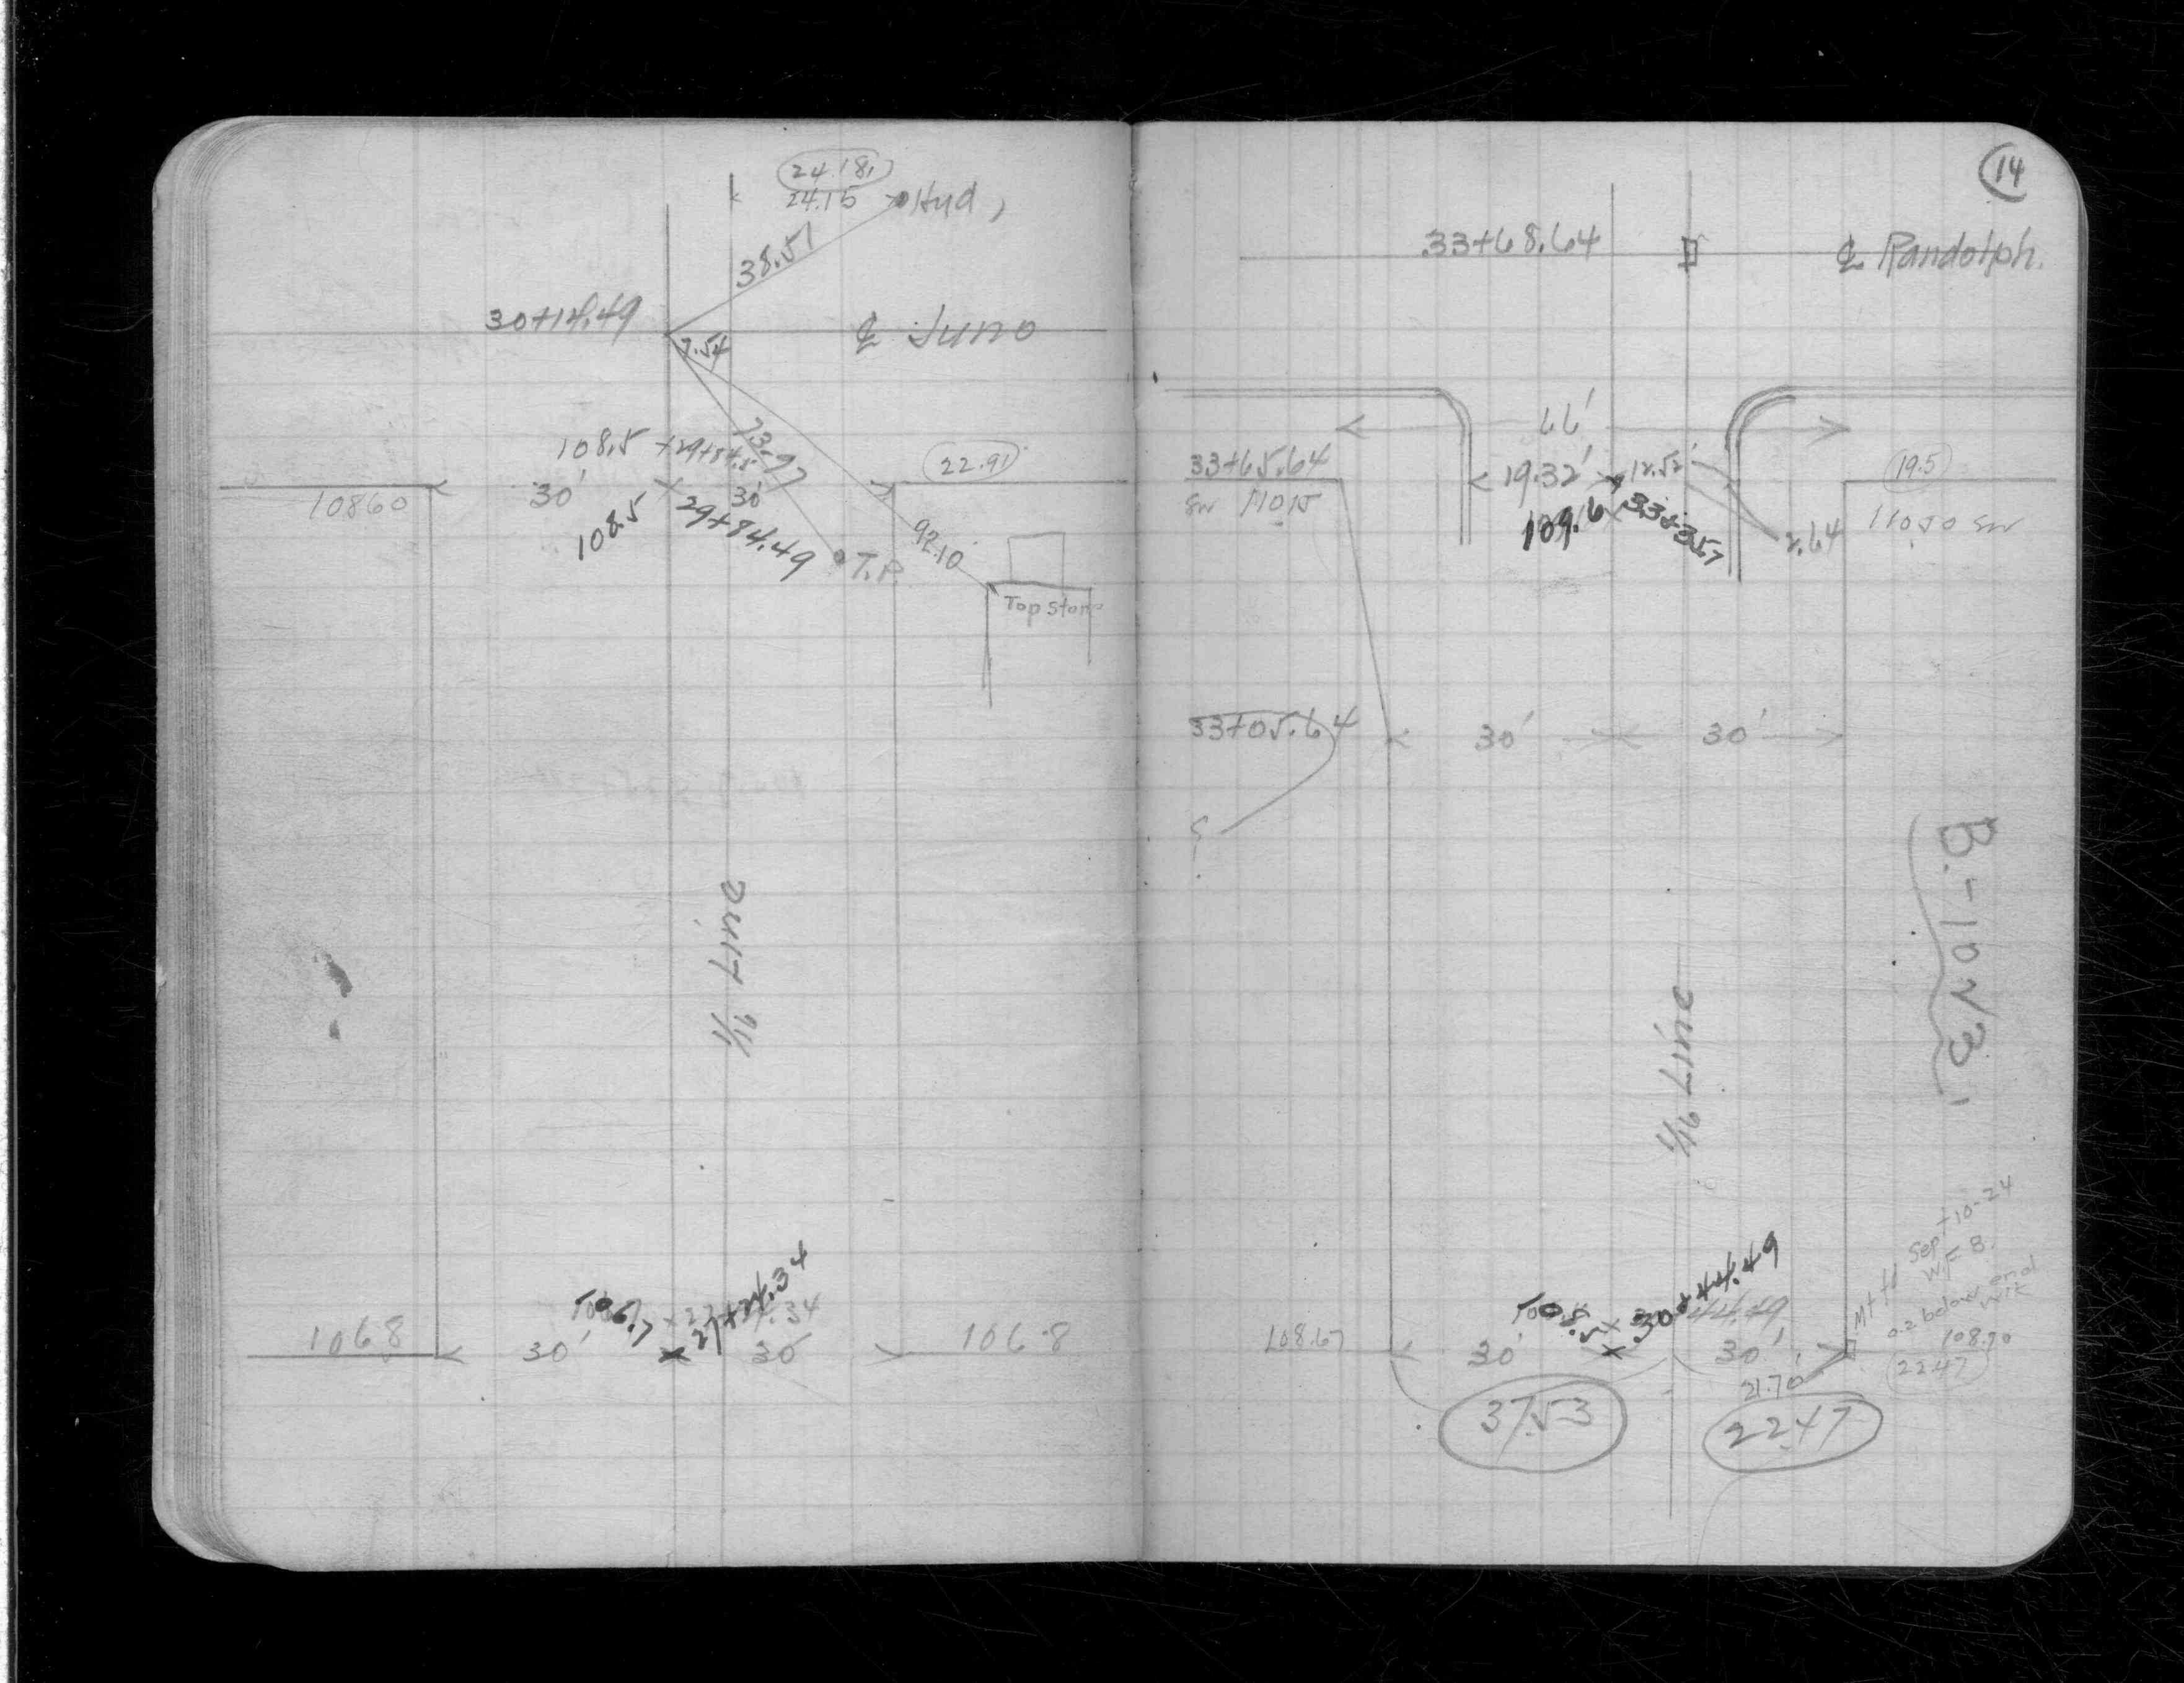 24.18
24.15
Hyd,
38.51
30+14.49
7.54
℄ Juno
73.97
108.5 +29+84.5
22.91
10860
30'
30'
108.5
29+84.49
T.P.
92.10
Top Stone
1/16 Line
106.7
27+24.34
1068
30'
30
106.8
14
33+68.64
℄ Randolph.
66'
33+65.64
19.32'
12.52'
19.5
SW 110.15
109.6
33+35.7
2.64
110.50 SW
33+05.64
30'
30'
?
B.-1053
1/16 Line
Sept 10-24
W.F.B.
0.2 below end
108.5
30+44.49
44.49
108.67
30'
30'
108.70
21.70'
22.47
37.53
22.47